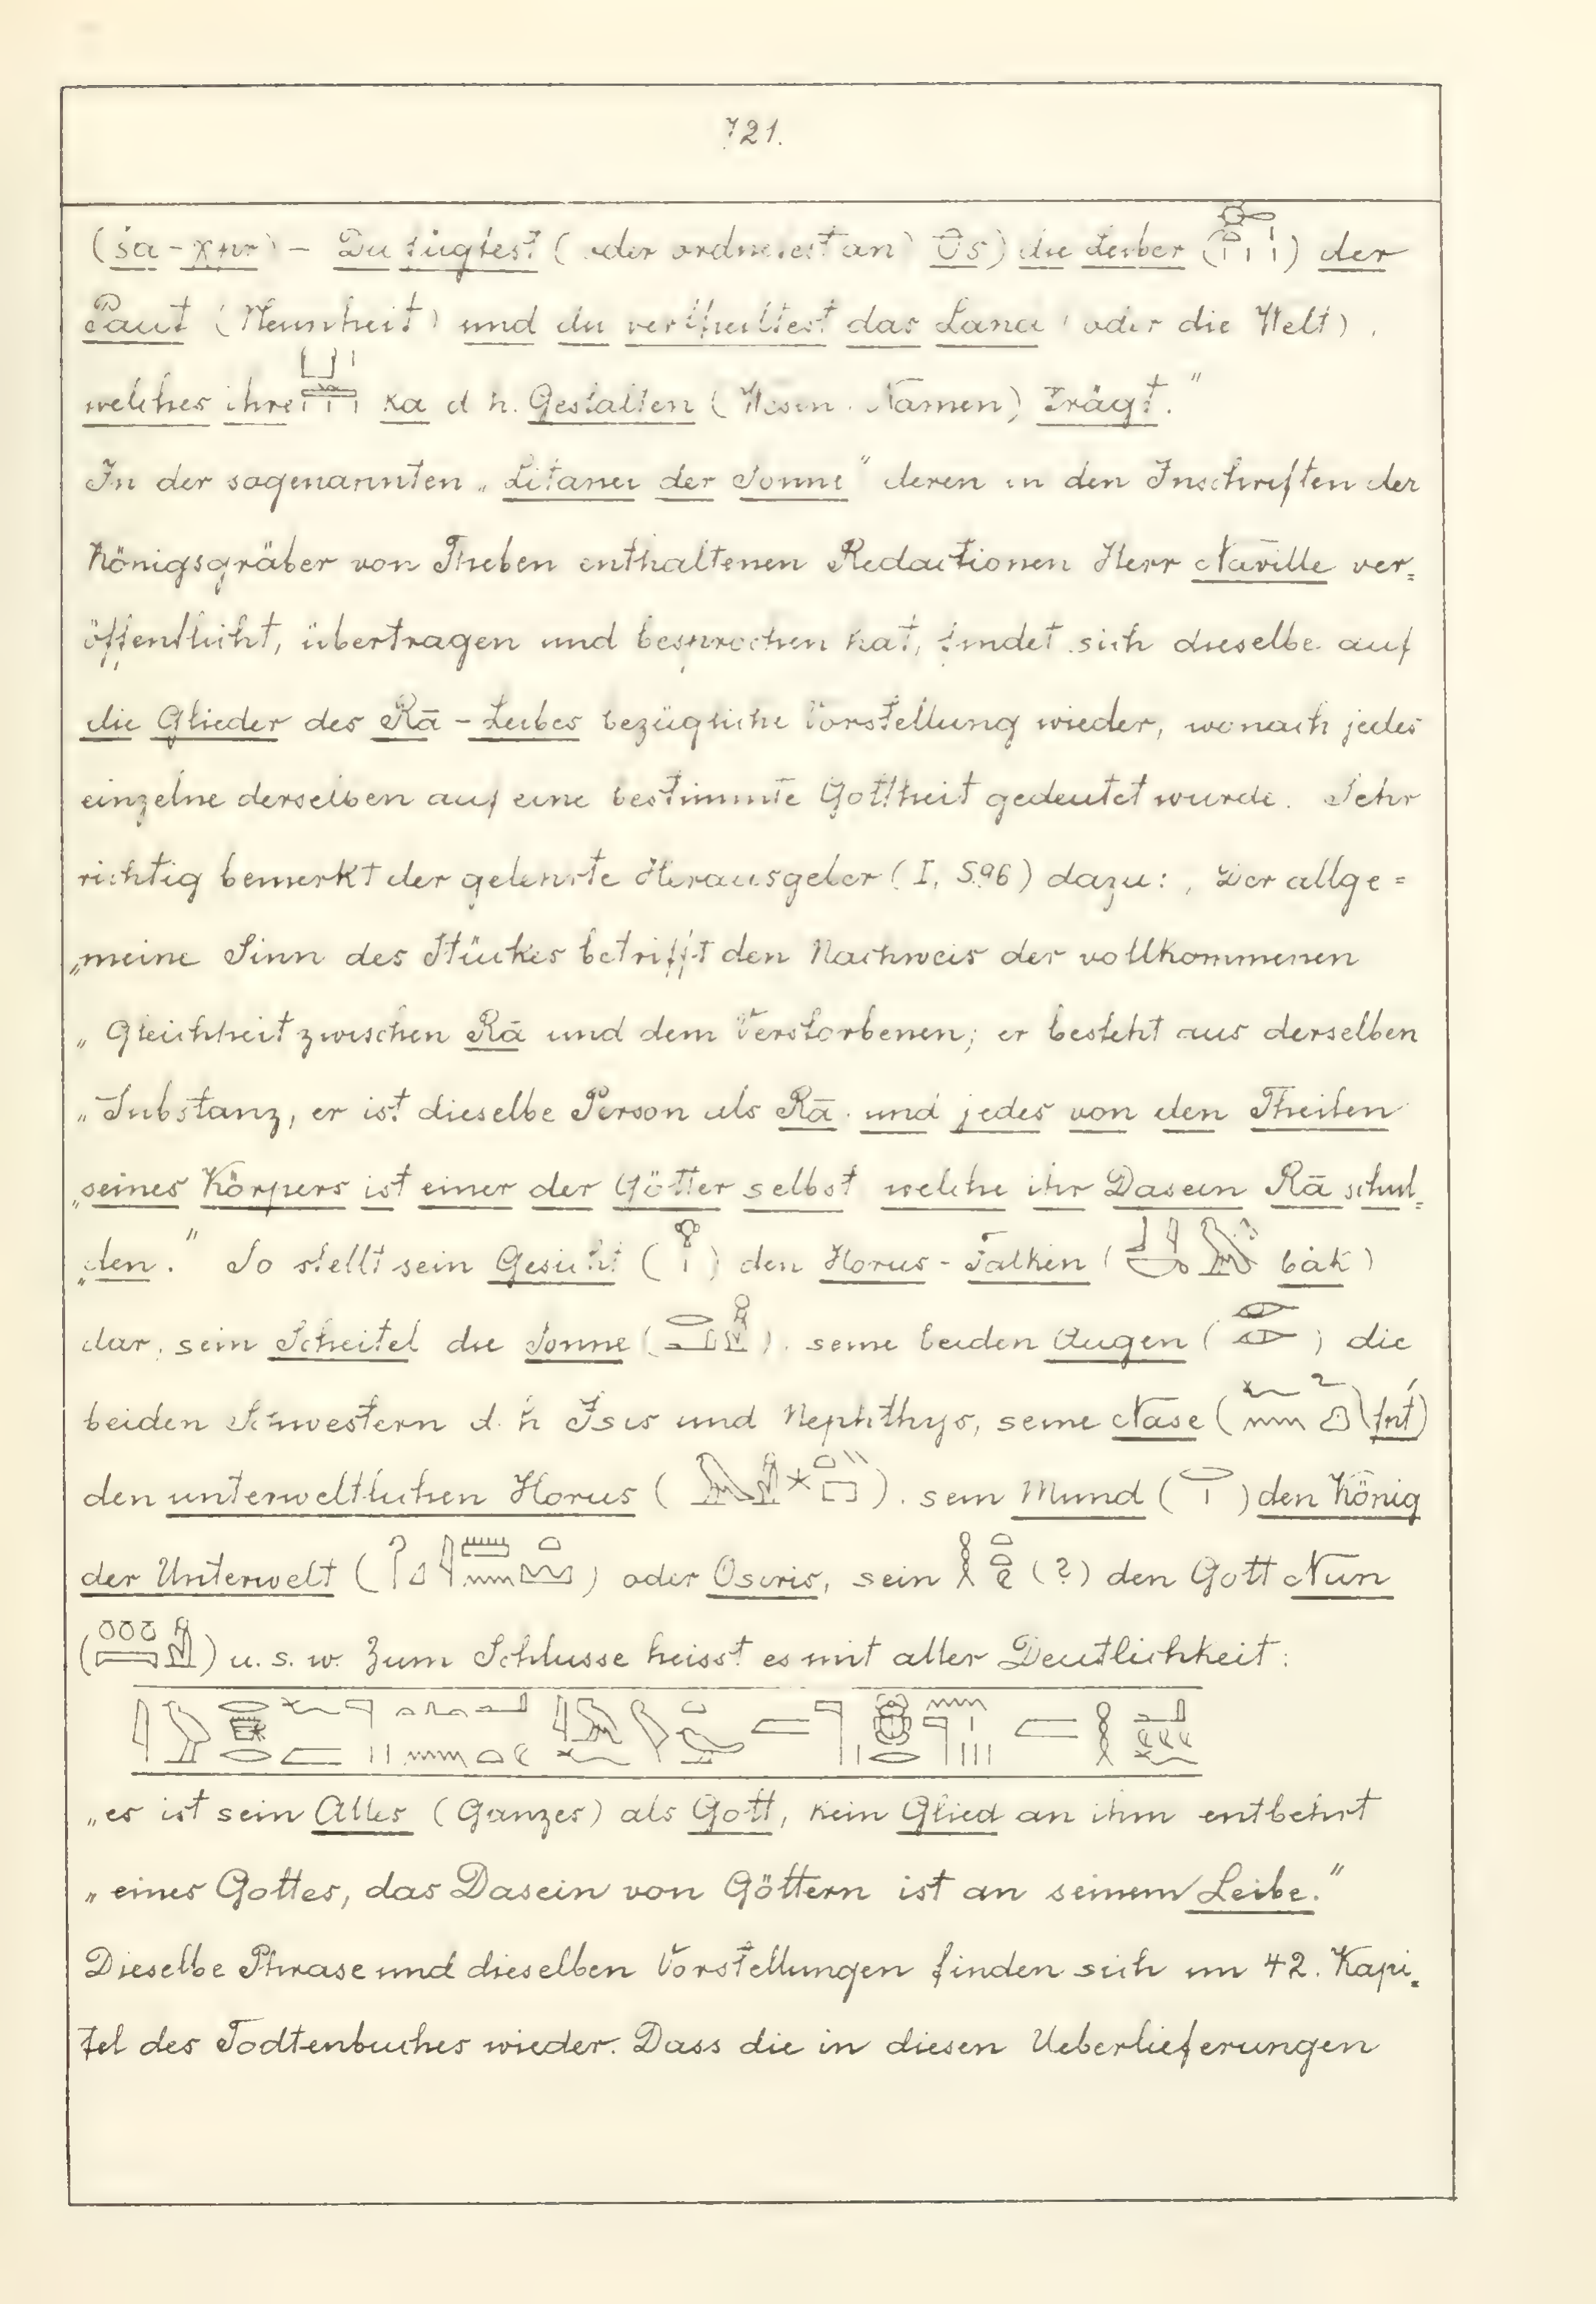 721.
(śa-χnr) – Du fügtest (oder ordnetest an) die Leiber () der
Paut (Neunheit) und du vertheiltest das Land (oder die Welt),
welches ihre ka d. h. Gestalten (Wesen, Namen) trägt."
In der sogenannten „Litanei der Sonne" deren in den Inschriften der
Königsgräber von Theben enthaltenen Redactionen Herr Naville ver=
öffentlicht, übertragen und besprochen hat, findet sich dieselbe auf
die Glieder des Rā-Leibes bezügliche Vorstellung wieder, wonach jedes
einzelne derselben auf eine bestimmte Gottheit gedeutet wurde. Sehr
richtig bemerkt der gelehrte Herausgeber (I, S. 96) dazu: „Der allge=
„meine Sinn des Stückes betrifft den Nachweis der vollkommenen
„Gleichheit zwischen Rā und dem Verstorbenen; er besteht aus derselben
„Substanz, er ist dieselbe Person als Rā und jedes von den Theilen
„seines Körpers ist einer der Götter selbst welche ihr Dasein Rā schul=
„den." So stellt sein Gesicht () den Horus-Falken ( båk)
dar, sein Scheitel die Sonne (), seine beiden Augen () die
beiden Schwestern d. h. Isis und Nephthys, seine Nase ( fnt)
den unterweltlichen Horus (), sein Mund () den König
der Unterwelt () oder Osiris, sein (?) den Gott Nun
() u. s. w. Zum Schlusse heisst es mit aller Deutlichkeit:
„es ist sein Alles (Ganzes) als Gott, kein Glied an ihm entbehrt
„eines Gottes, das Dasein von Göttern ist an seinem Leibe."
Dieselbe Phrase und dieselben Vorstellungen finden sich im 42. Kapi=
tel des Todtenbuches wieder. Dass die in diesen Ueberlieferungen